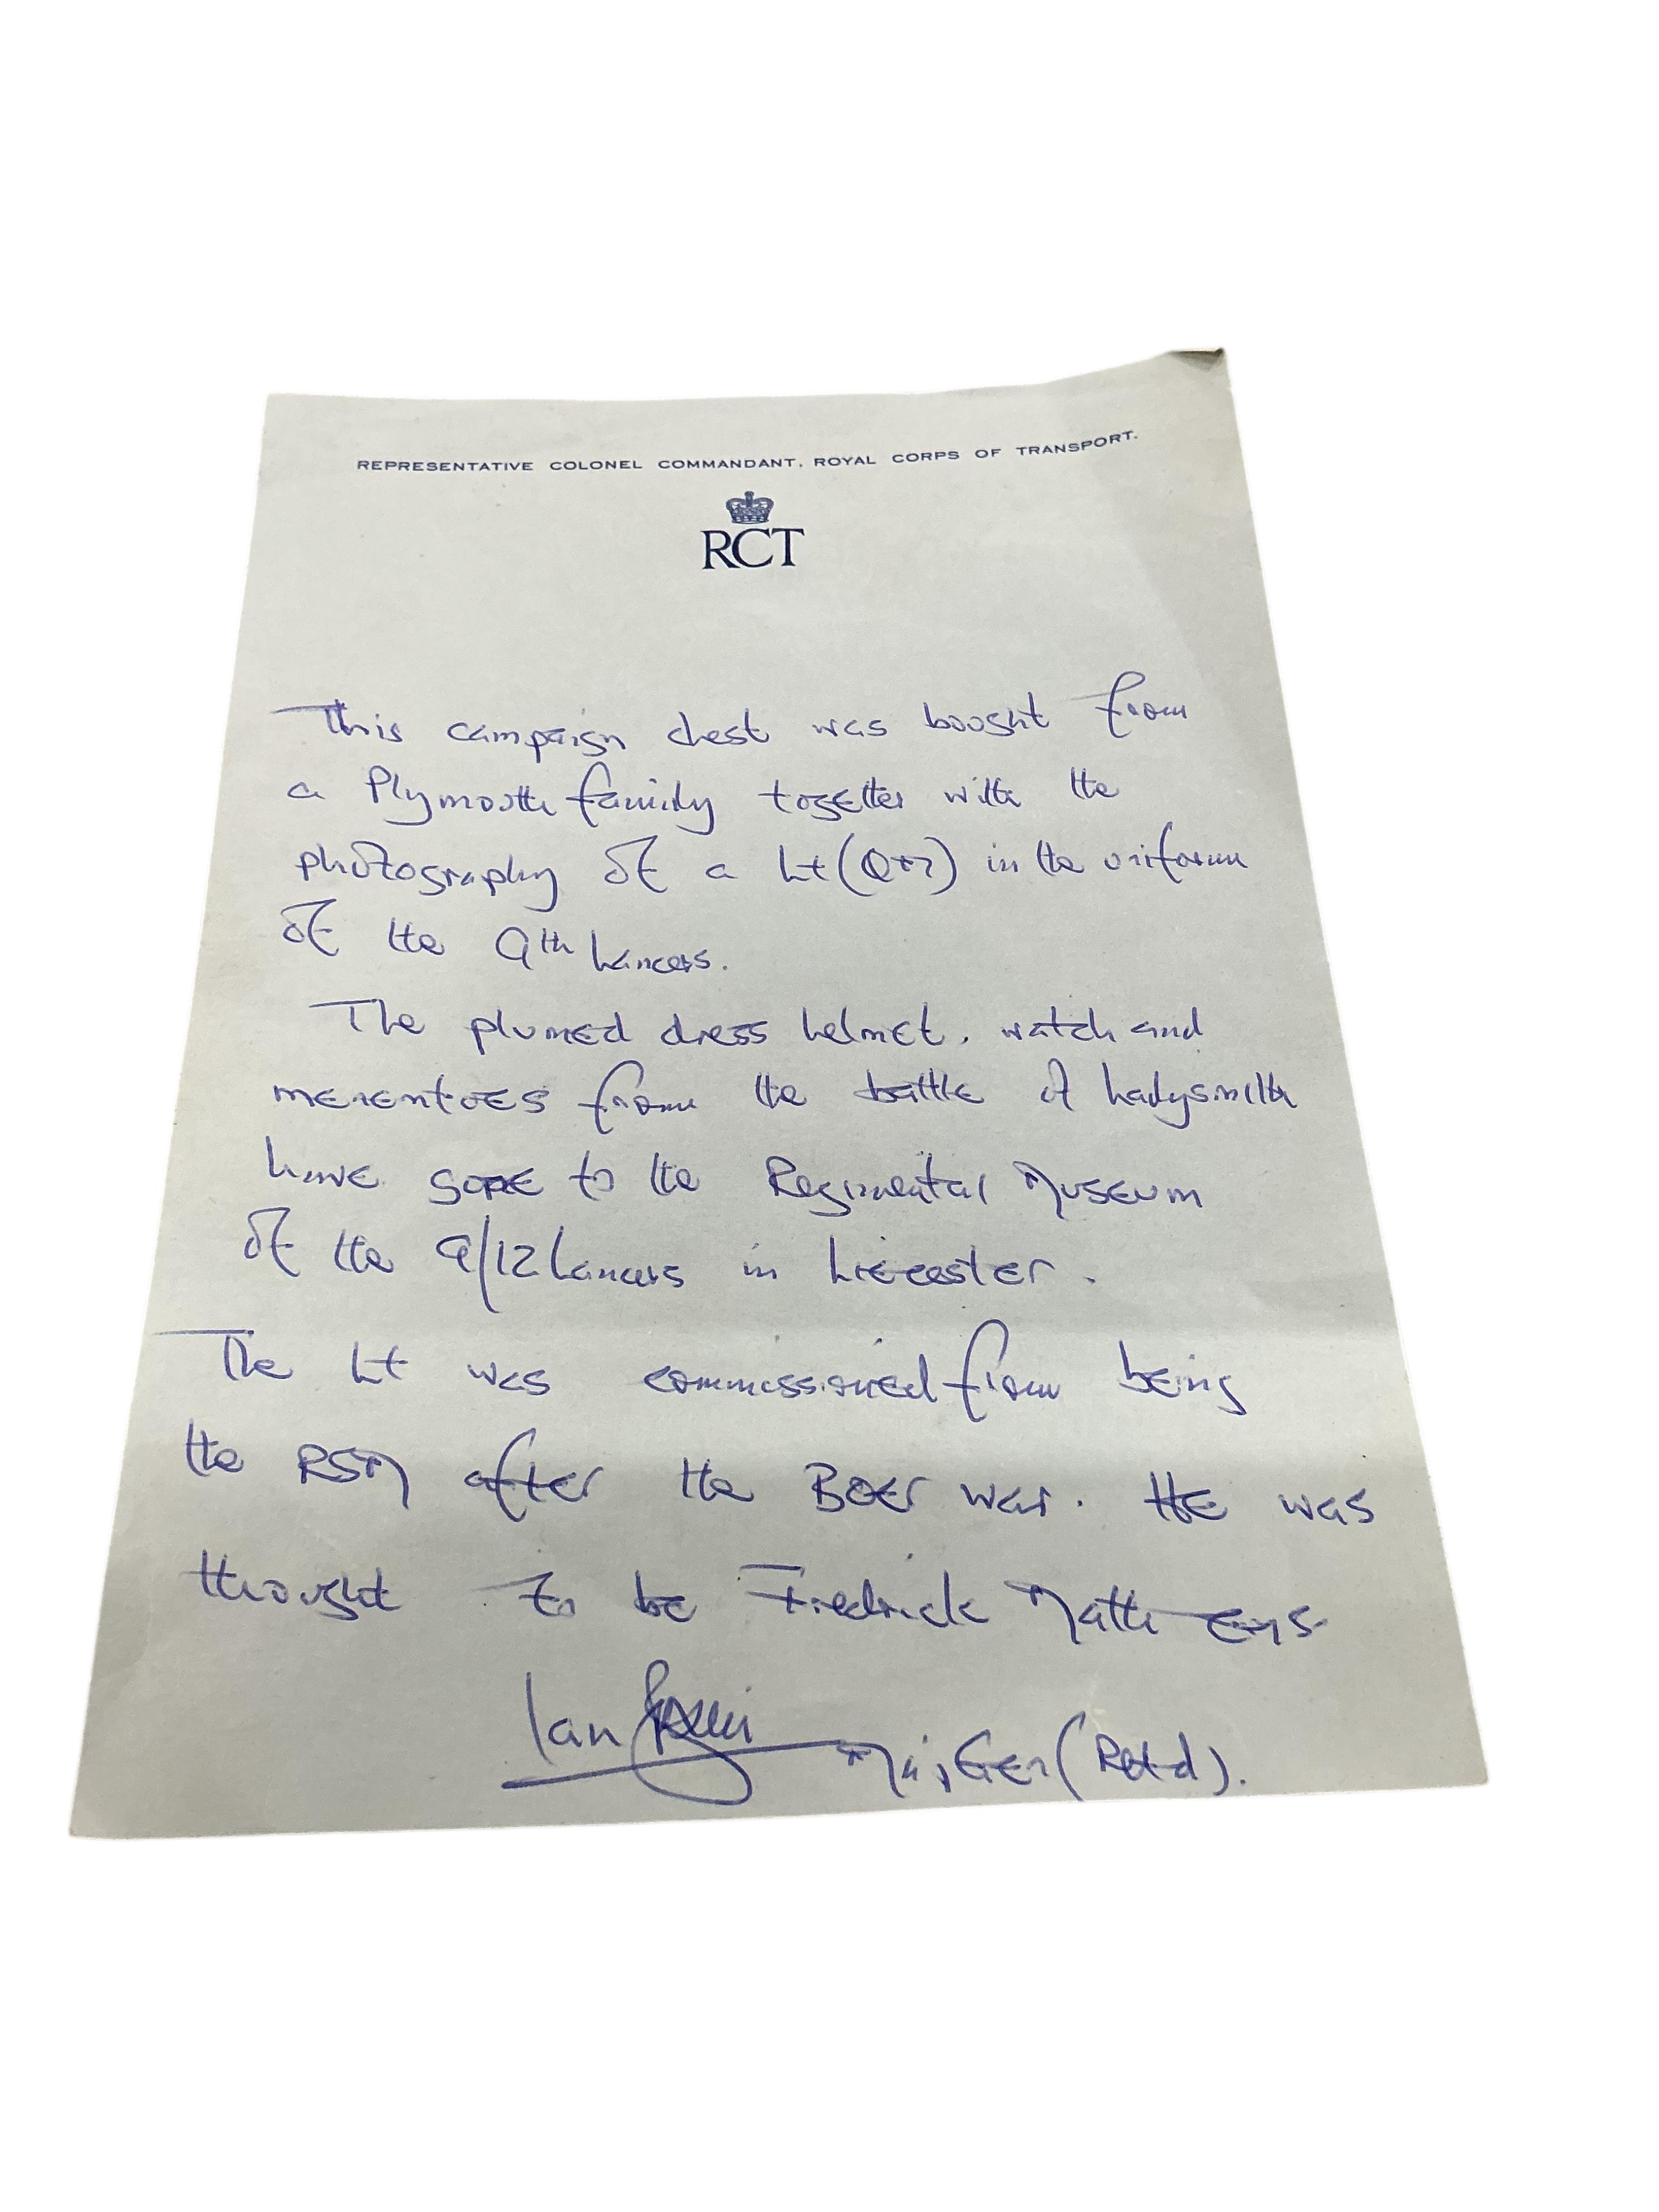 REPRESENTATIVE COLONEL COMMANDANT, ROYAL CORPS OF TRANSPORT.
RCT
This campaign chest was bought from
a Plymouth family together with the
photography of a Lt (QM) in the uniform
of the 9th Lancers.
The plumed dress helmet, watch and
mementoes from the battle of Ladysmith
have gone to the Regimental Museum
of the 9/12 Lancers in Liecester.
The Lt was commissioned from being
the RSM after the Boer war. He was
thought to be Fredrick Matthews
Ian Maj Gen (Retd).